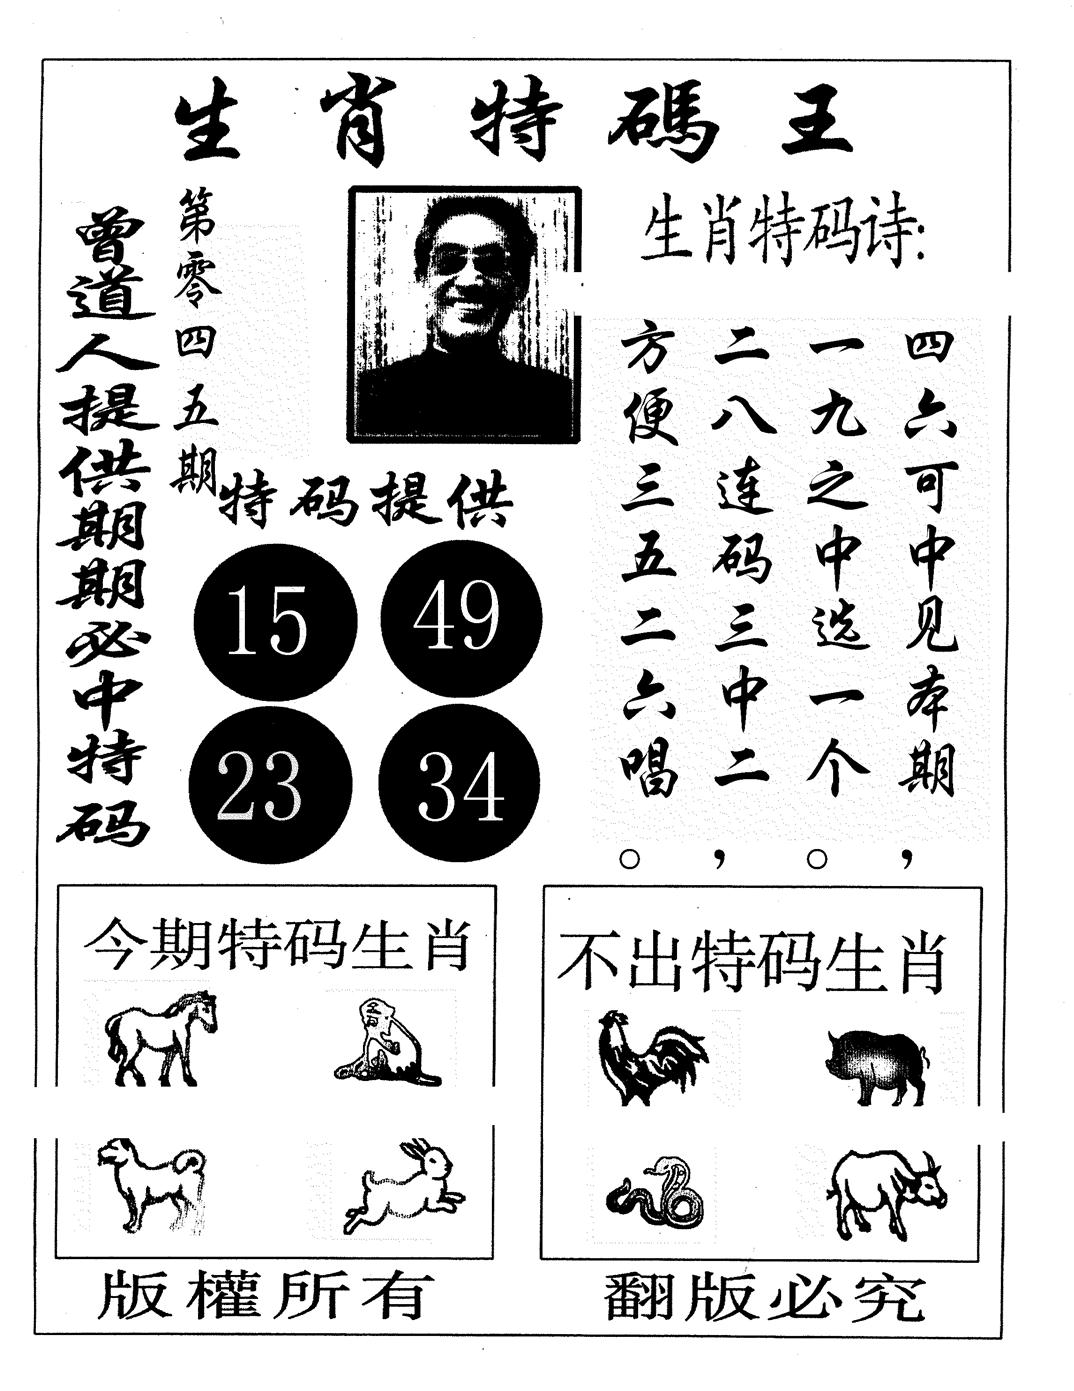 生肖特碼王
曾道人提供期期必中特码
第零四五期
特码提供
15 49
23 34
生肖特码诗:
四六可中见本期，
一九之中选一个。
二八连码三中二，
方便三五二六唱。
今期特码生肖
不出特码生肖
版權所有
翻版必究